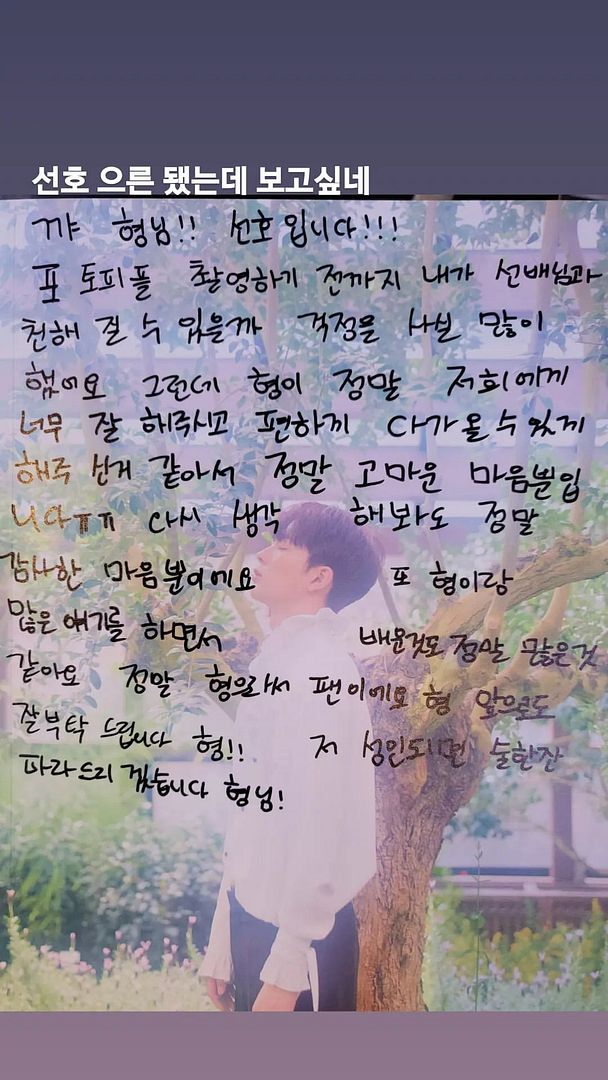 선호 으른 됐는데 보고싶네
꺄 형님!! 선호입니다!!!
포토피플 촬영하기 전까지 내가 선배님과
친해 질 수 있을까 걱정을 사실 많이
했어요 그런데 형이 정말 저희에게
너무 잘 해주시고 편하게 다가올수있게
해주신거 같아서 정말 고마운 마음뿐입
니다ㅠㅠ 다시 생각 해봐도 정말
감사한 마음뿐이에요 또 형이랑
많은 얘기를 하면서 배운것도 정말 많은것
같아요 정말 형으로써 팬이에요 형 앞으로도
잘부탁 드립니다 형!! 저 성인되면 술한잔
따라드리겠습니다 형님!